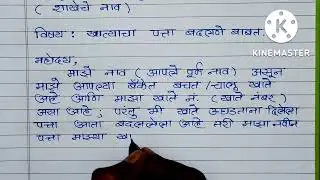 ( शाखेचे नाव )
विषय : खात्याचा पत्ता बदलणे बाबत.
KINEMASTER
महोदय,
माझे नाव ( आपले पूर्ण नाव ) असून
माझे आपल्या बँकेत बचत / चालू खाते
आहे आणि माझा खाते नं. ( खाते नंबर )
असा आहे ; परंतु मी खाते उघडताना दिलेला
पत्ता आता बदललेला आहे तरी माझा नवीन
पत्ता माझ्या खा